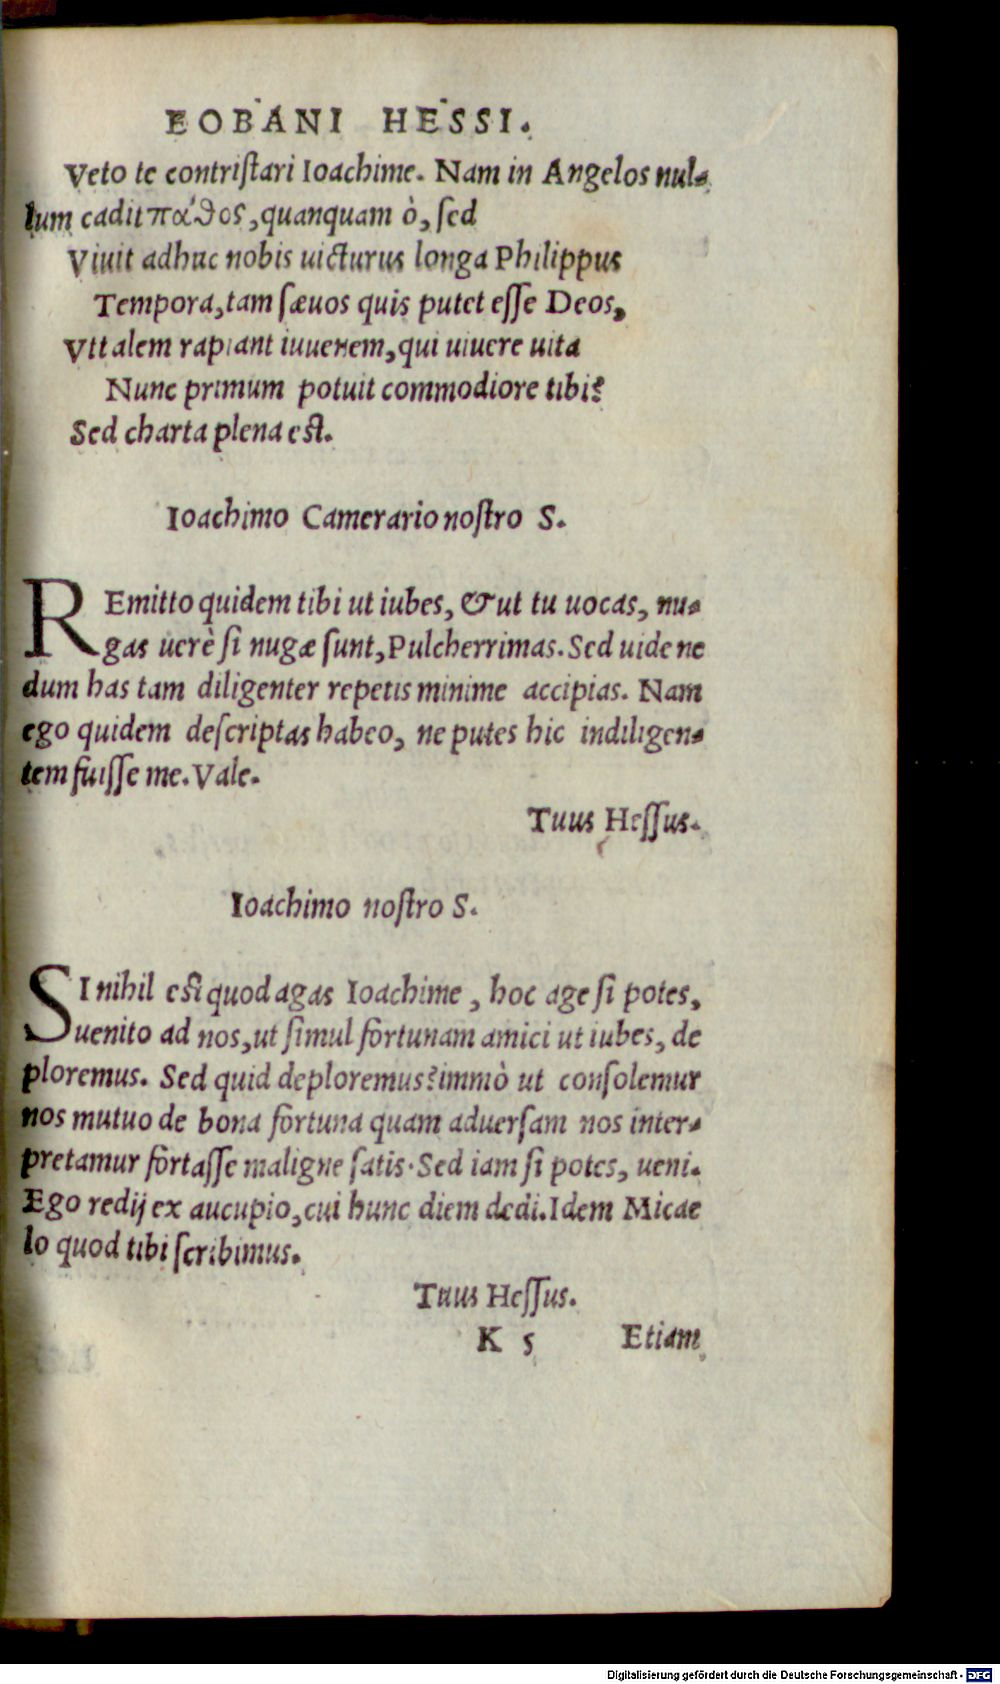 EOBANI HESSI.
Veto te contriſtari Ioachime. Nam in Angelos nul-
lum cadit πάθος, quanquam ò, ſed
Viuit adhuc nobis uicturus longa Philippus
Tempora, tam ſæuos quis putet eſſe Deos,
Vt talem rapiant iuuenem, qui uiuere uita
Nunc primum potuit commodiore tibi?
Sed charta plena eſt.
Ioachimo Camerario noſtro S.
REmitto quidem tibi ut iubes, & ut tu uocas, nu-
gas uerè ſi nugæ ſunt, Pulcherrimas. Sed uide ne
dum has tam diligenter repetis minime accipias. Nam
ego quidem deſcriptas habeo, ne putes hic indiligen-
tem fuiſſe me. Vale.
Tuus Heſſus.
Ioachimo noſtro S.
SI nihil eſt quod agas Ioachime, hoc age ſi potes,
uenito ad nos, ut ſimul fortunam amici ut iubes, de
ploremus. Sed quid deploremus? immò ut conſolemur
nos mutuo de bona fortuna quam aduerſam nos inter-
pretamur fortaſſe maligne ſatis. Sed iam ſi potes, ueni.
Ego redij ex aucupio, cui hunc diem dedi. Idem Micae
lo quod tibi ſcribimus.
Tuus Heſſus.
K 5 Etiam
Digitalisierung gefördert durch die Deutsche Forschungsgemeinschaft - DFG